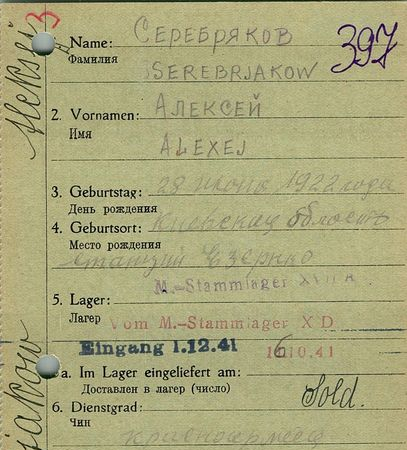 3
Name: Серебряков
Фамилия
SEREBRJAKOW
397
2. Vornamen: Алексей
Имя
ALEXEJ
3. Geburtstag: 28 июня 1922 года
День рождения
4. Geburtsort: Киевская область
Место рождения
станция
M.-Stammlager
5. Lager:
Лагер
Vom M.-Stammlager X D
Eingang 1.12.41
10.41
a. Im Lager eingeliefert am:
Доставлен в лагер (число)
Sold.
6. Dienstgrad:
Чин
красноармеец
Aleksej
jakow